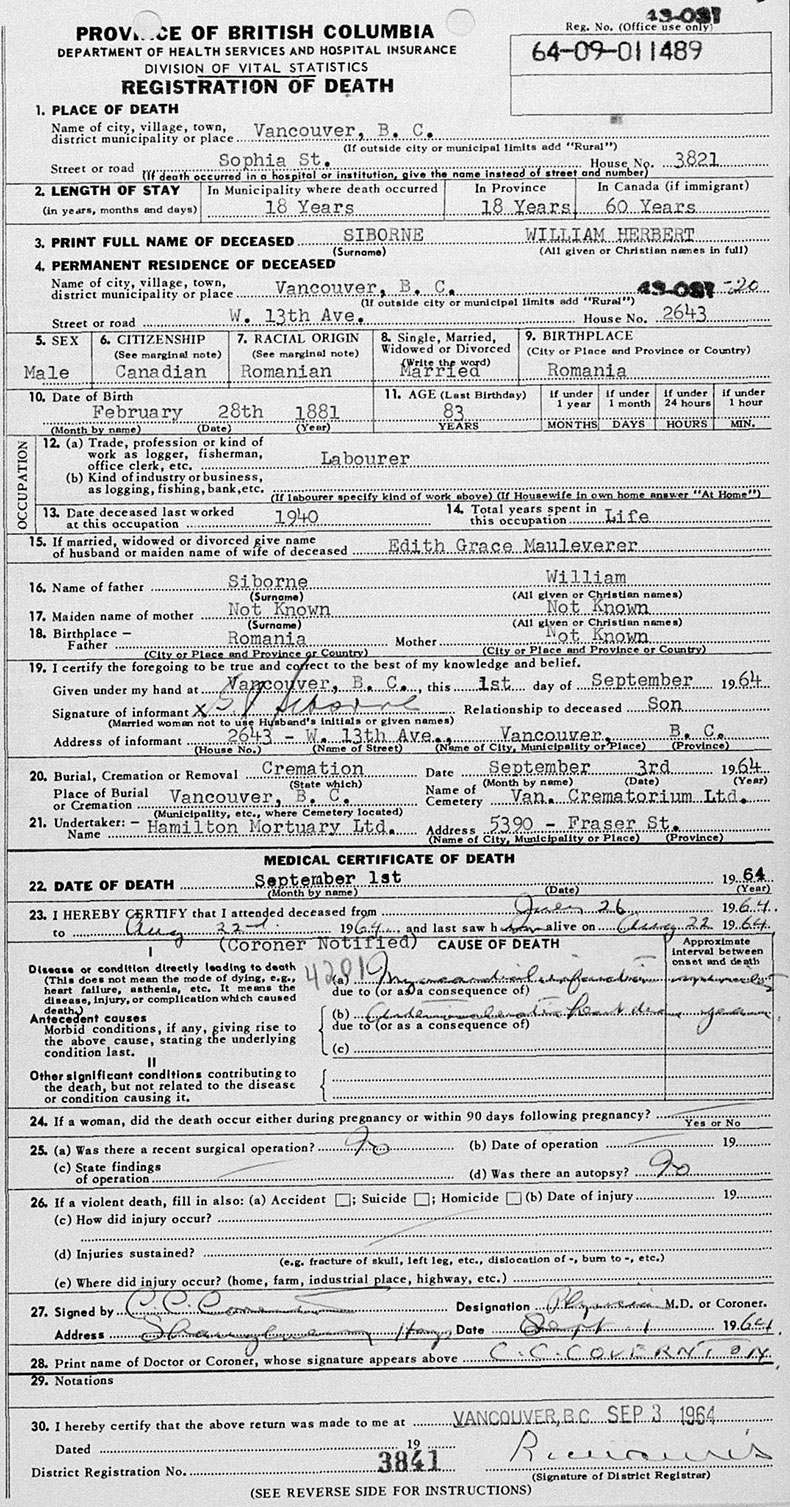 PROVINCE OF BRITISH COLUMBIA
DEPARTMENT OF HEALTH SERVICES AND HOSPITAL INSURANCE
DIVISION OF VITAL STATISTICS
REGISTRATION OF DEATH
43-087
Reg. No. (Office use only)
64-09-011489
1. PLACE OF DEATH
Name of city, village, town,
district municipality or place Vancouver, B. C.
(If outside city or municipal limits add "Rural")
Street or road Sophia St. House No. 3821
(If death occurred in a hospital or institution, give the name instead of street and number)
2. LENGTH OF STAY In Municipality where death occurred In Province In Canada (if immigrant)
(in years, months and days) 18 Years 18 Years 60 Years
3. PRINT FULL NAME OF DECEASED SIBORNE WILLIAM HERBERT
(Surname) (All given or Christian names in full)
4. PERMANENT RESIDENCE OF DECEASED
Name of city, village, town,
district municipality or place Vancouver, B. C. 43-087-20
(If outside city or municipal limits add "Rural")
Street or road W. 13th Ave. House No. 2643
5. SEX 6. CITIZENSHIP 7. RACIAL ORIGIN 8. Single, Married, 9. BIRTHPLACE
(See marginal note) (See marginal note) Widowed or Divorced (City or Place and Province or Country)
(Write the word)
Male Canadian Romanian Married Romania
10. Date of Birth 11. AGE (Last Birthday) if under 1 year if under 1 month if under 24 hours if under 1 hour
February 28th 1881 83
(Month by name) (Date) (Year) YEARS MONTHS DAYS HOURS MIN.
OCCUPATION
12. (a) Trade, profession or kind of
work as logger, fisherman,
office clerk, etc. Labourer
(b) Kind of industry or business,
as logging, fishing, bank, etc.
(If labourer specify kind of work above) (If Housewife in own home answer "At Home")
13. Date deceased last worked
at this occupation 1940
14. Total years spent in
this occupation Life
15. If married, widowed or divorced give name
of husband or maiden name of wife of deceased Edith Grace Mauleverer
16. Name of father Siborne William
(Surname) (All given or Christian names)
17. Maiden name of mother Not Known Not Known
(Surname) (All given or Christian names)
18. Birthplace –
Father Romania Mother Not Known
(City or Place and Province or Country) (City or Place and Province or Country)
19. I certify the foregoing to be true and correct to the best of my knowledge and belief.
Given under my hand at Vancouver, B. C., this 1st day of September 1964
Signature of informant x Siborne Relationship to deceased Son
(Married woman not to use Husband's initials or given names)
Address of informant 2643 - W. 13th Ave., Vancouver, B. C.
(House No.) (Name of Street) (Name of City, Municipality or Place) (Province)
20. Burial, Cremation or Removal Cremation Date September 3rd 1964
(State which) (Month by name) (Date) (Year)
Place of Burial
or Cremation Vancouver, B. C.
Name of
Cemetery Van. Crematorium Ltd.
(Municipality, etc., where Cemetery located)
21. Undertaker: –
Name Hamilton Mortuary Ltd. Address 5390 - Fraser St.
(Name of City, Municipality or Place) (Province)
MEDICAL CERTIFICATE OF DEATH
22. DATE OF DEATH September 1st 1964
(Month by name) (Date) (Year)
23. I HEREBY CERTIFY that I attended deceased from 26 1964
to Aug 22nd 1964 and last saw h alive on Aug 22 1964
(Coroner Notified)
I CAUSE OF DEATH Approximate
interval between
onset and death
Disease or condition directly leading to death
(This does not mean the mode of dying, e.g.,
heart failure, asthenia, etc. It means the
disease, injury, or complication which caused
death.)
4201 (a) Myocardial infarction
due to (or as a consequence of)
Antecedent causes
Morbid conditions, if any, giving rise to
the above cause, stating the underlying
condition last.
(b) heart
due to (or as a consequence of)
(c)
II
Other significant conditions contributing to
the death, but not related to the disease
or condition causing it.
24. If a woman, did the death occur either during pregnancy or within 90 days following pregnancy?
Yes or No
25. (a) Was there a recent surgical operation? No (b) Date of operation 19
(c) State findings
of operation (d) Was there an autopsy? No
26. If a violent death, fill in also: (a) Accident ; Suicide ; Homicide (b) Date of injury 19
(c) How did injury occur?
(d) Injuries sustained?
(e.g. fracture of skull, left leg, etc., dislocation of -, burn to -, etc.)
(e) Where did injury occur? (home, farm, industrial place, highway, etc.)
27. Signed by C. C. Designation Physician M.D. or Coroner.
Address Date Sept 1 1964
28. Print name of Doctor or Coroner, whose signature appears above C. C. COVERNTON
29. Notations
30. I hereby certify that the above return was made to me at VANCOUVER, B.C. SEP 3 1964
Dated 19
District Registration No. 3841
(Signature of District Registrar)
(SEE REVERSE SIDE FOR INSTRUCTIONS)